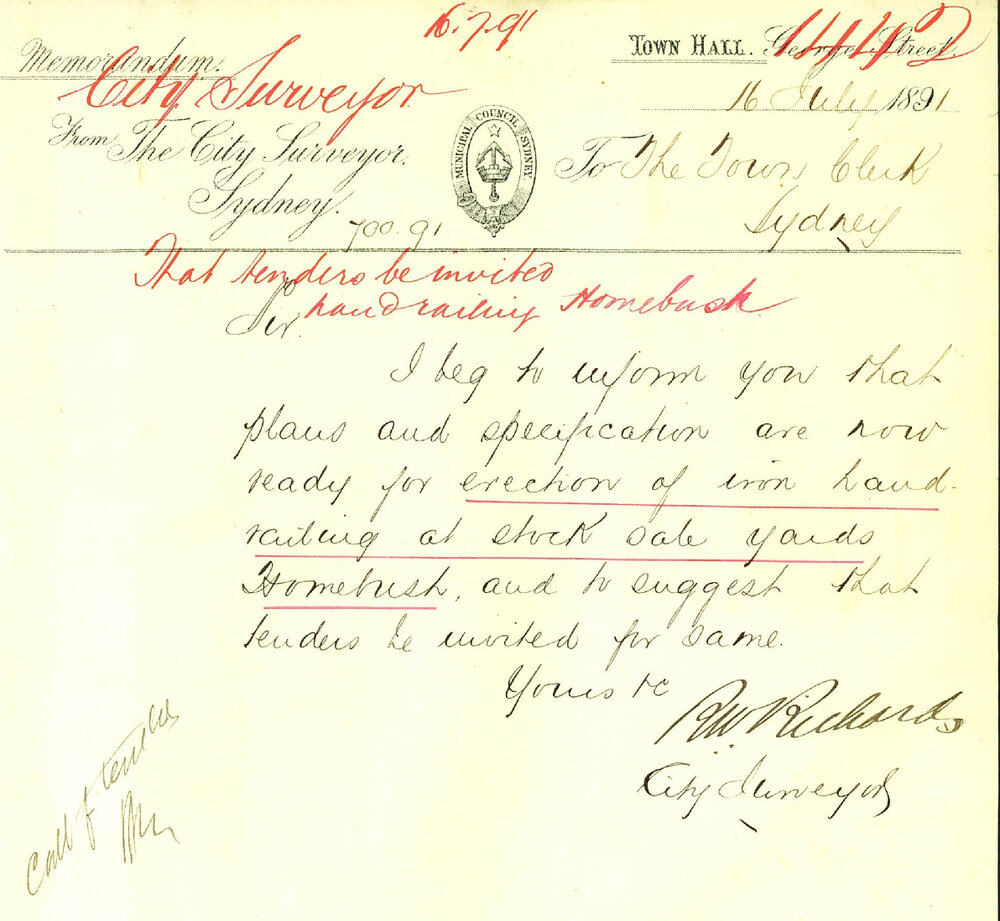 16.7.91
TOWN HALL. George Street.
Memorandum.
City Surveyor
16 July 1891
From The City Surveyor,
Sydney.
MUNICIPAL COUNCIL SYDNEY
To The Town Clerk
Sydney
700.91
That tenders be invited
handrailing Homebush
Sir
I beg to inform you that
plans and specification are now
ready for erection of iron hand-
railing at stock sale yards
Homebush, and to suggest that
tenders be invited for same.
Yours &c
RW Richards
City Surveyor
Call f. tenders